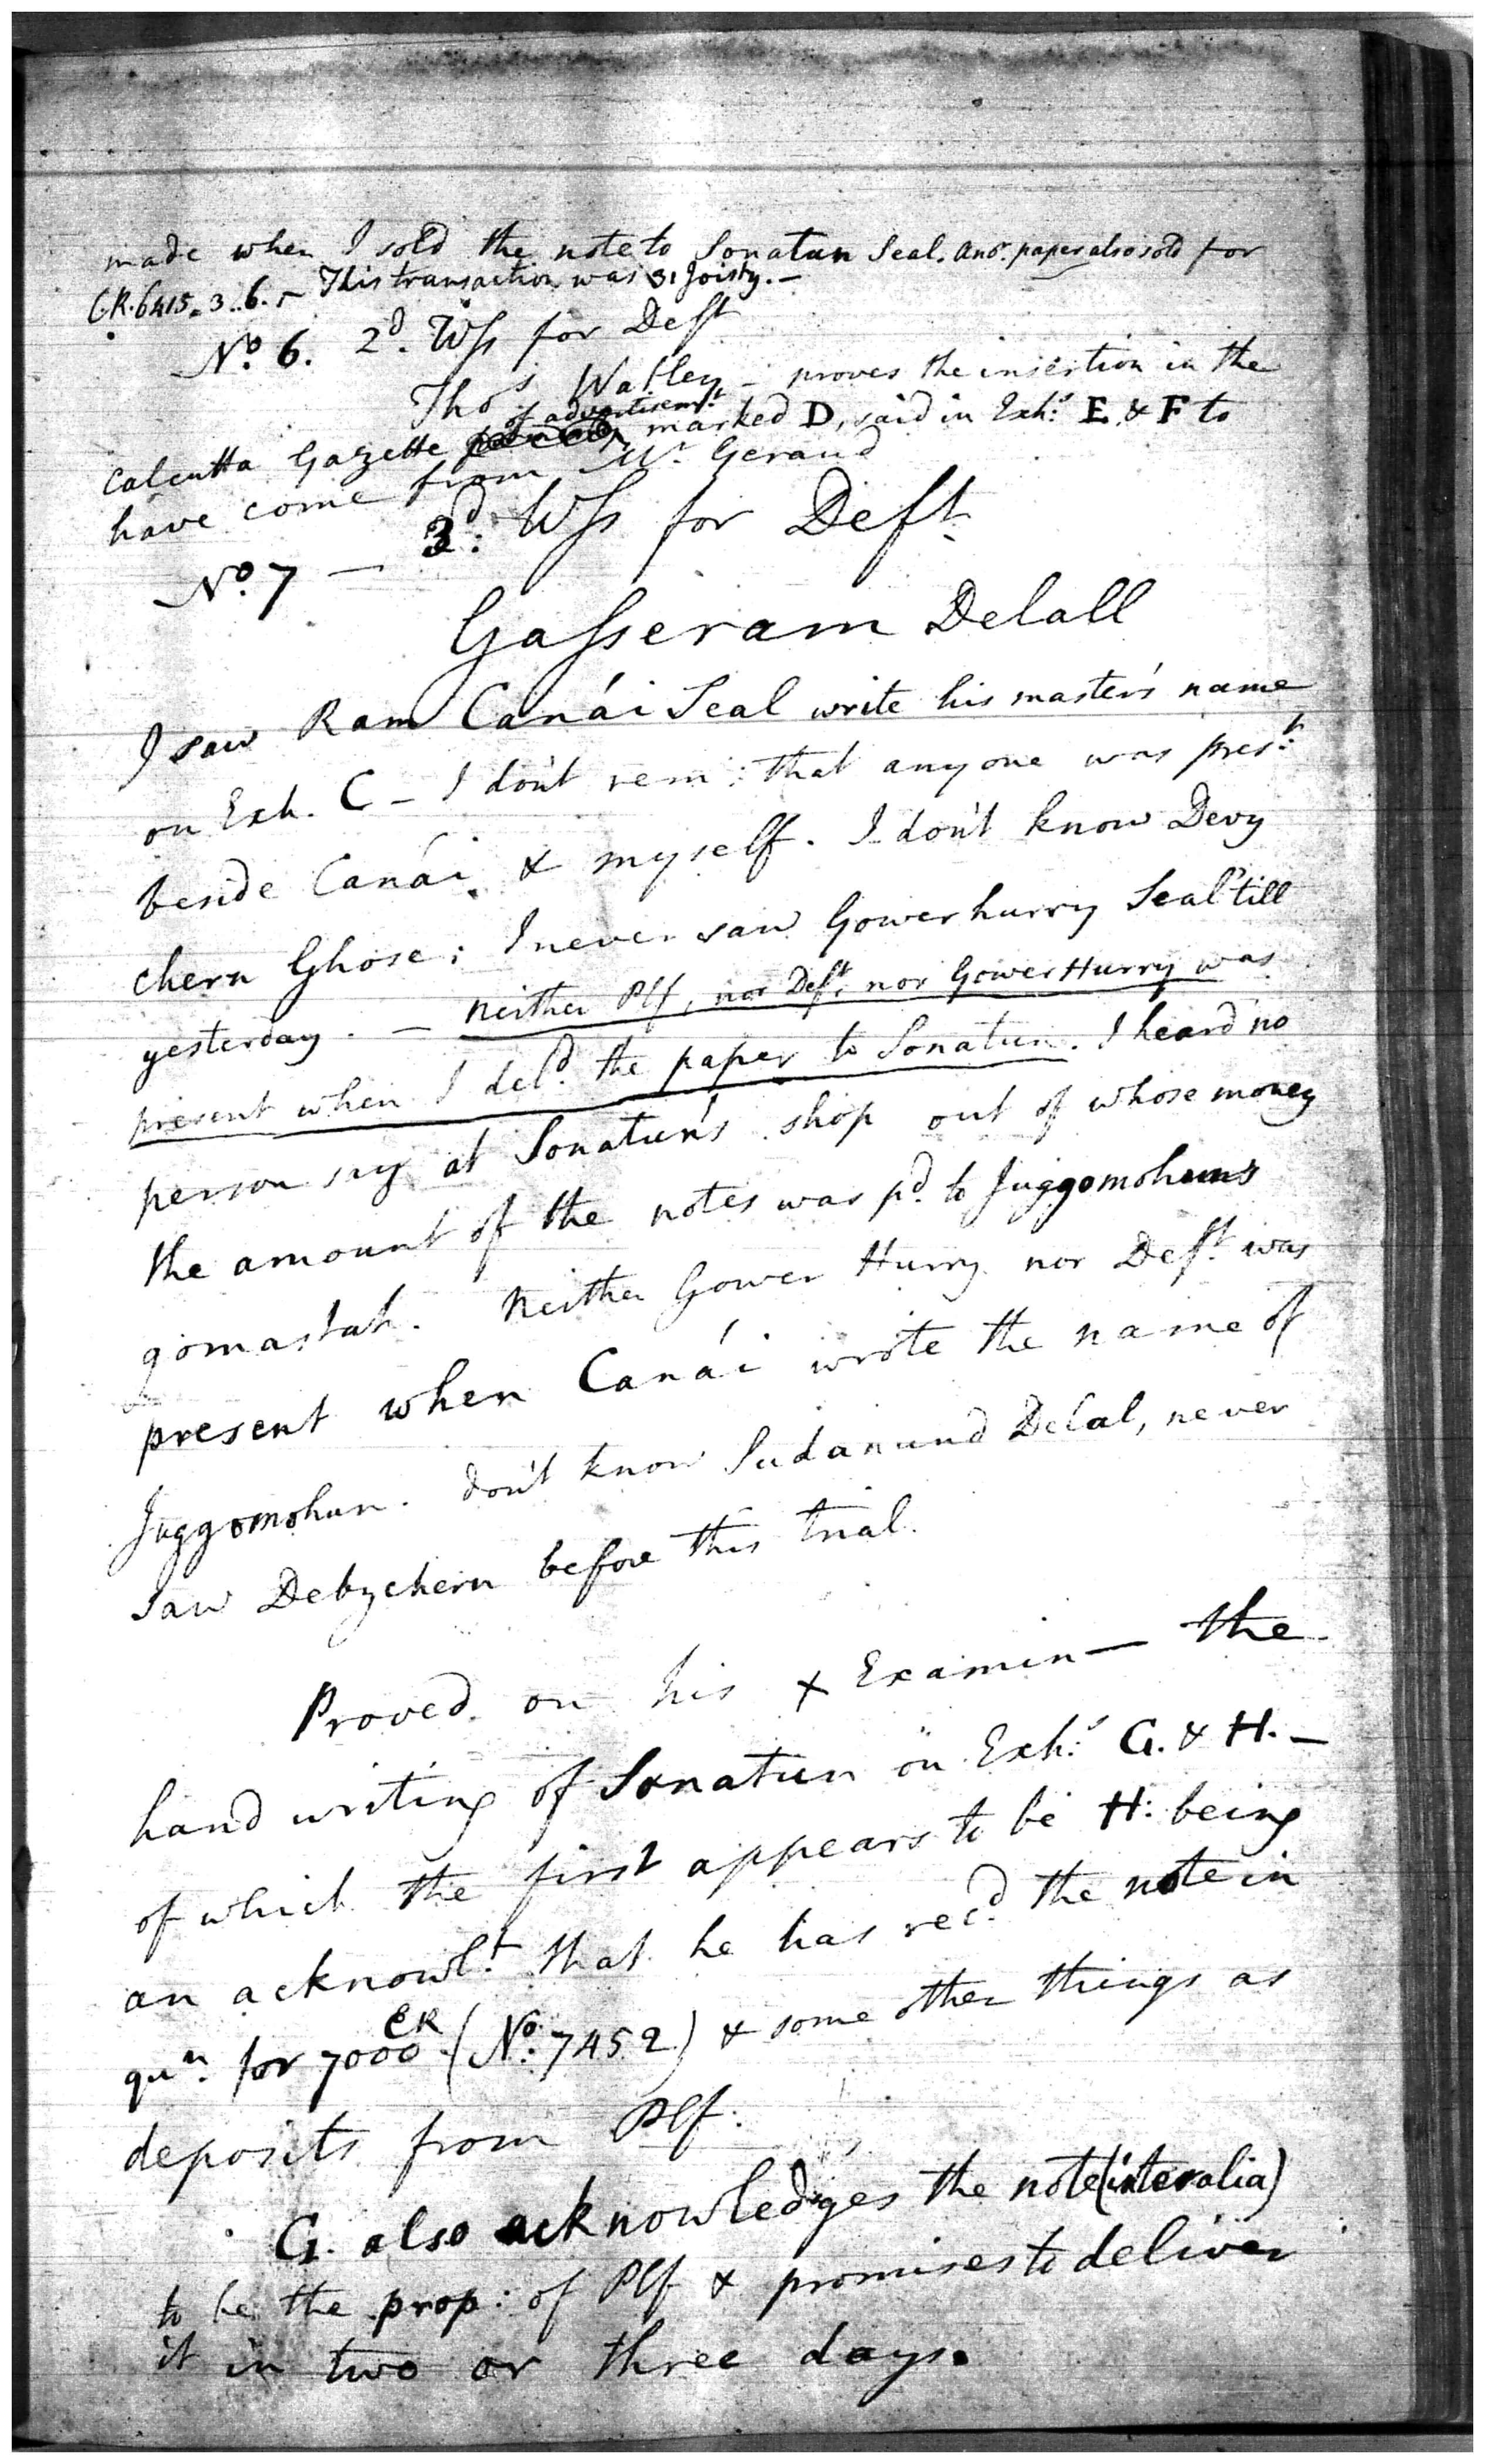 made when I sold the note to Sonatun Seal. Anor. paper also sold for
C.R. 6415..3..6. – This transaction was 31 Joisty. –
No. 6. 2d. Wss for Deft
Thos. Watley – proves the insertion in the
of advertisemt.
Calcutta Gazette marked D, said in Exhs. E & F to
have come from Mr. Geraud
No. 7 — 3d: Wss for Deft.
Gasseram Delall
I saw Ram Canái Seal write his master's name
on Exh. C – I don't rem: that anyone was prest.
beside Canái & myself. I don't know Devy
chern Ghose; I never saw Gowerhurry Seal 'till
yesterday. – Neither Plf, nor Deft, nor Gower Hurry was
present when I deld. the paper to Sonatun. I heard no
person say at Sonatun's shop out of whose money
the amount of the notes was pd. to Juggomohun's
gomastah. Neither Gower Hurry nor Deft. was
present when Canái wrote the name of
Juggomohun. Don't know Sudanund Delal, never
saw Debychern before this trial.
Proved on his x Examin — the
hand writing of Sonatun on Exhs. G. & H. –
of which the first appears to be H: being
an acknowlt. that he has recd. the note in
qun. for 7000 CR (No. 7452) & some other things as
deposits from Plf.
G. also acknowledges the note (inter alia)
to be the prop: of Plf & promises to deliver
it in two or three days.